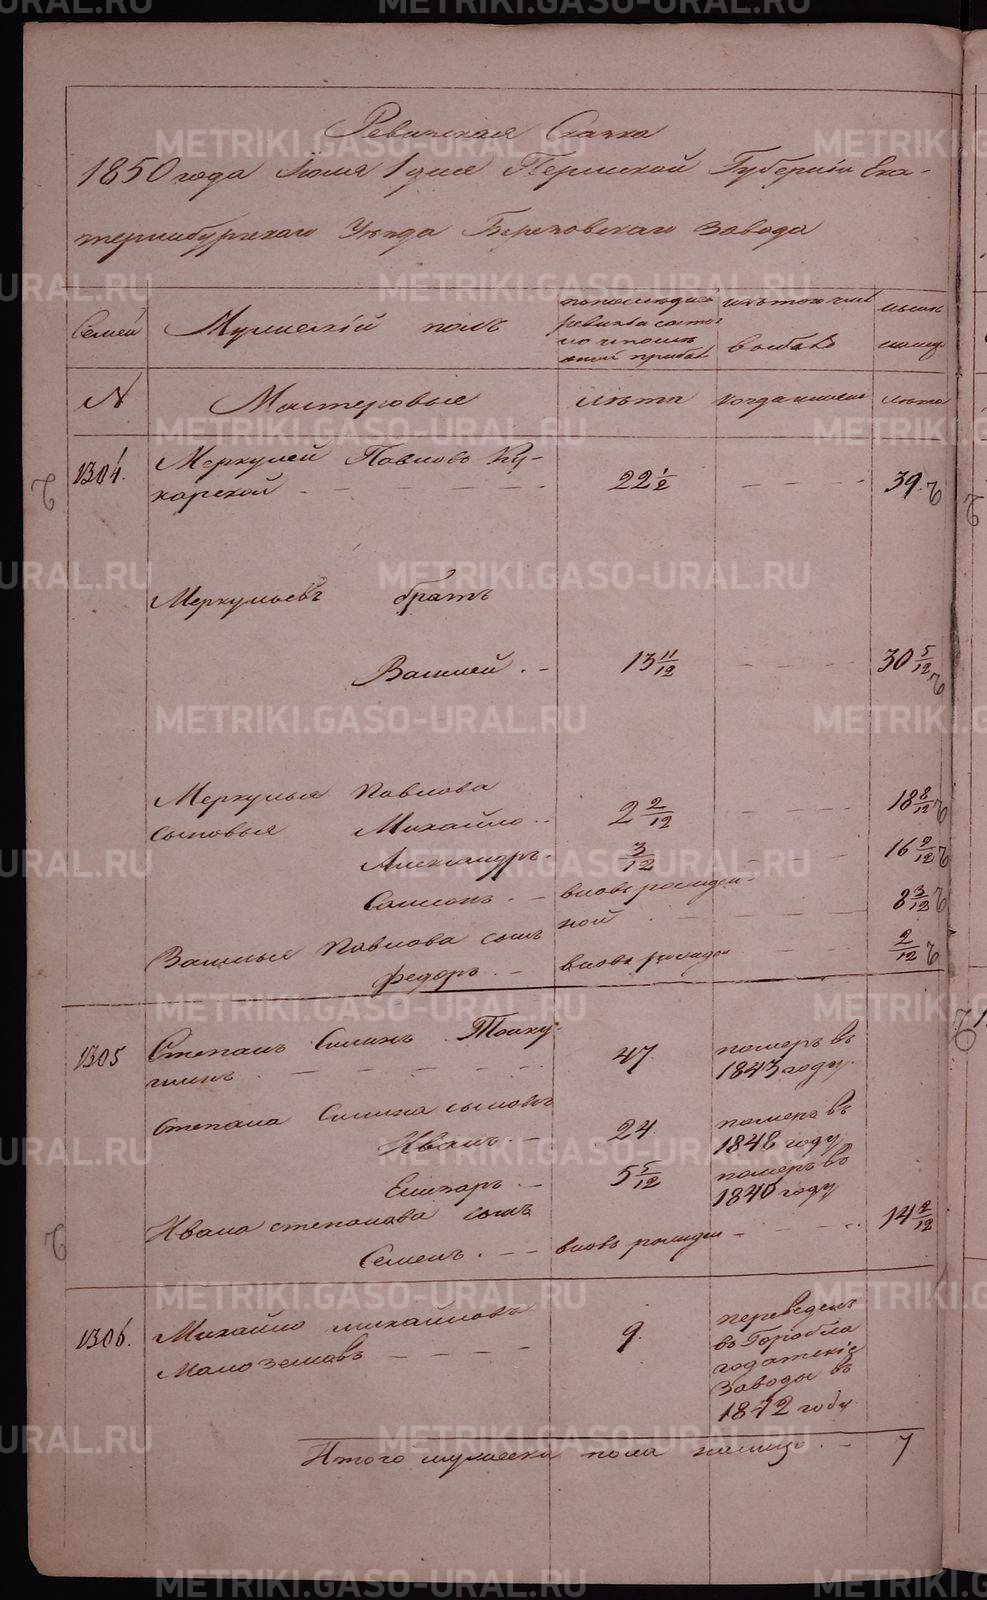 Ревизская Сказка
1850 года Июля 1 дня Пермской Губернии Ека-
теринбургскаго Уезда Березовскаго Завода
Семей
Мужеский полъ
по последней
ревизіи состо
яло и после
оной прибыло
изъ того числа
выбыло
ныне
налицо
№
Мастеровые
лета
когда именно
лета
1304.
Меркулей Павловъ Ку-
карской
22 1/2
39.
Меркульевъ братъ
Василей
13 11/12
30 5/12
Меркулья Павлова
сыновья Михайло
2 2/12
18 8/12
Александръ
3/12
16 9/12
Самсонъ вновь рожден-
ной
8 3/12
Василья Павлова сынъ
Федоръ вновь рожден
2/12
1305
Степанъ Силинъ
47
померъ въ
1843 году.
Степана Силина сыновья
Иванъ
24
померъ въ
1848 году
Елизаръ
5 5/12
померъ въ
1840 году
Ивана степанова сынъ
Семенъ вновь рожден
14 2/12
1306.
Михайло михайловъ
Малоземовъ
9.
переведенъ
въ Горобла
годатскіе
Заводы въ
1842 году
Итого мужеска пола налицо
7
METRIKI.GASO-URAL.RU